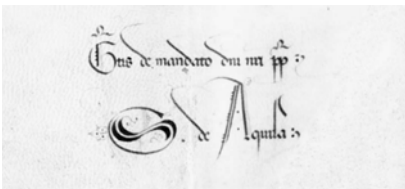 Gtis de mandato dni nri pp :
S. de Aquila :